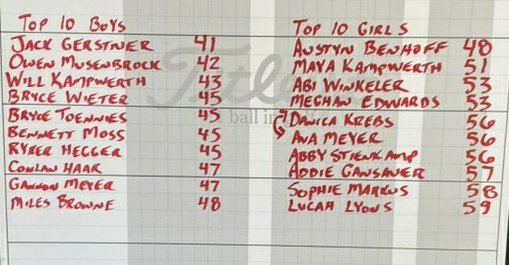 Top 10 Boys
Jack Gerstner 41
Owen Musenbrock 42
Will Kampwerth 43
Bryce Wieter 45
Bryce Toennies 45
Bennett Moss 45
Ryker Hegger 45
Conlan Haar 47
Gannon Meyer 47
Miles Browne 48
Top 10 Girls
Austyn Benhoff 48
Maya Kampwerth 51
Abi Winkeler 53
Meghan Edwards 53
Danica Krebs 56
Ava Meyer 56
Abby Stienkamp 56
Addie Gansauer 57
Sophie Markus 58
Lucah Lyons 59
Titleist
ball in